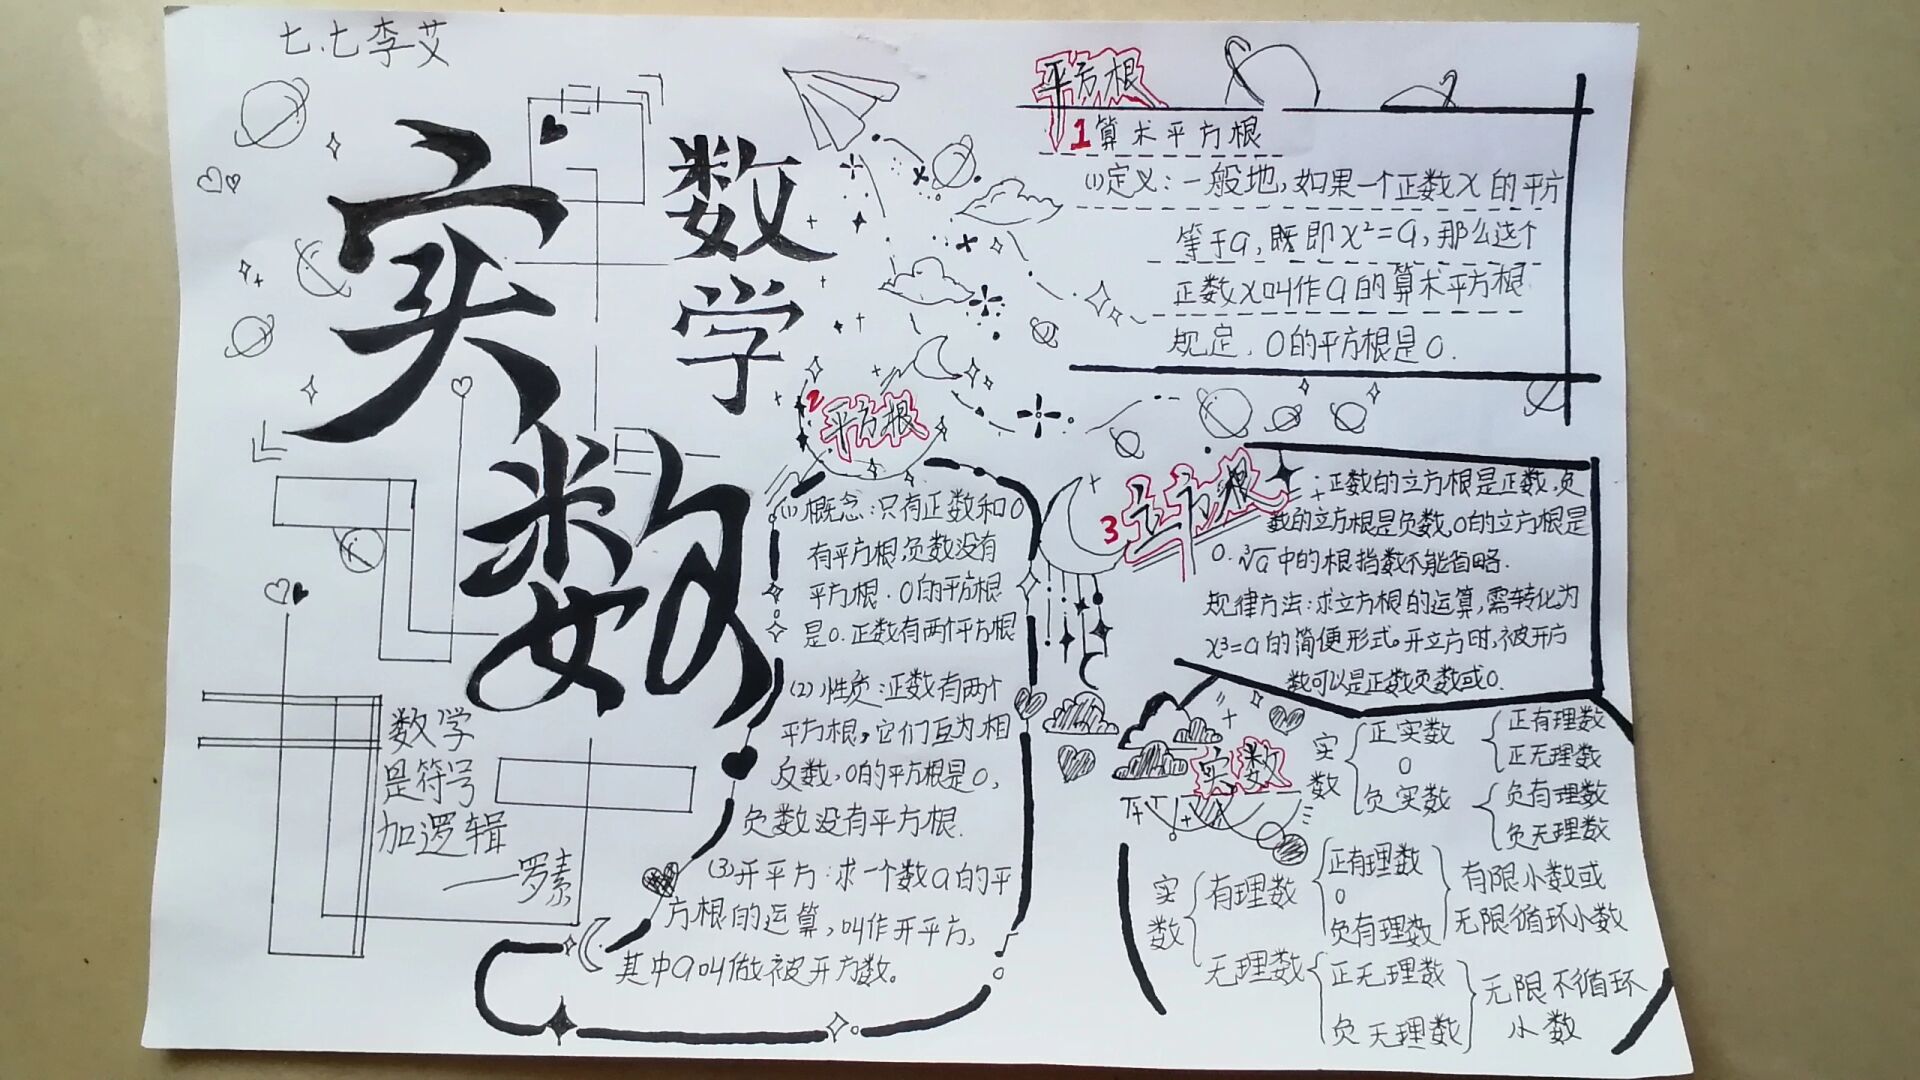 七.七李艾
实数
数学
数学
是符号
加逻辑
——罗素
平方根
1算术平方根
(1)定义:一般地,如果一个正数x的平方
等于a,既即x²=a,那么这个
正数x叫作a的算术平方根
规定,0的平方根是0.
2平方根
(1)概念:只有正数和0
有平方根,负数没有
平方根.0的平方根
是0.正数有两个平方根
(2)性质:正数有两个
平方根,它们互为相
反数,0的平方根是0,
负数没有平方根.
(3)开平方:求一个数a的平
方根的运算,叫作开平方,
其中a叫做被开方数。
3立方根
:正数的立方根是正数,负
数的立方根是负数,0的立方根是
0.³√a中的根指数不能省略.
规律方法:求立方根的运算,需转化为
x³=a的简便形式。开立方时,被开方
数可以是正数负数或0.
实数
实数{正实数{正有理数
正无理数
0
负实数{负有理数
负无理数
实数{有理数{正有理数
0
负有理数}有限小数或
无限循环小数
无理数{正无理数
负无理数}无限不循环
小数